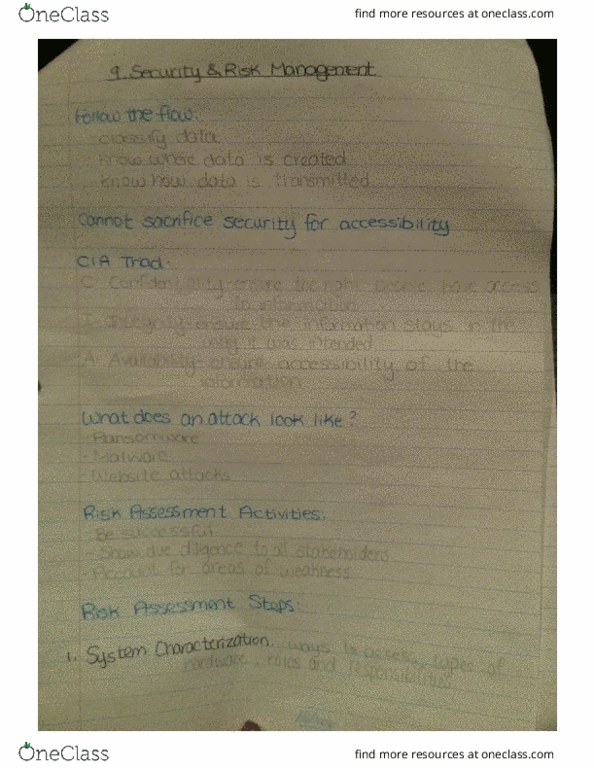 OneClass
find more resources at oneclass.com
9. Security & Risk Management
Follow the flow:
- classify data
- know where data is created
- know how data is transmitted
Cannot sacrifice security for accessibility
CIA Triad:
C. Confidentiality-ensure the right people have access
to information
I. Integrity-ensure the information stays in the
way it was intended
A. Availability-ensure accessibility of the
information
What does an attack look like?
- Ransomware
- Malware
- Website attacks
Risk Assessment Activities:
- Be successful
- Show due diligence to all stakeholders
- Account for areas of weakness
Risk Assessment Steps:
1. System Characterization: ways to access, types of
hardware, roles and responsibilities
OneClass
find more resources at oneclass.com